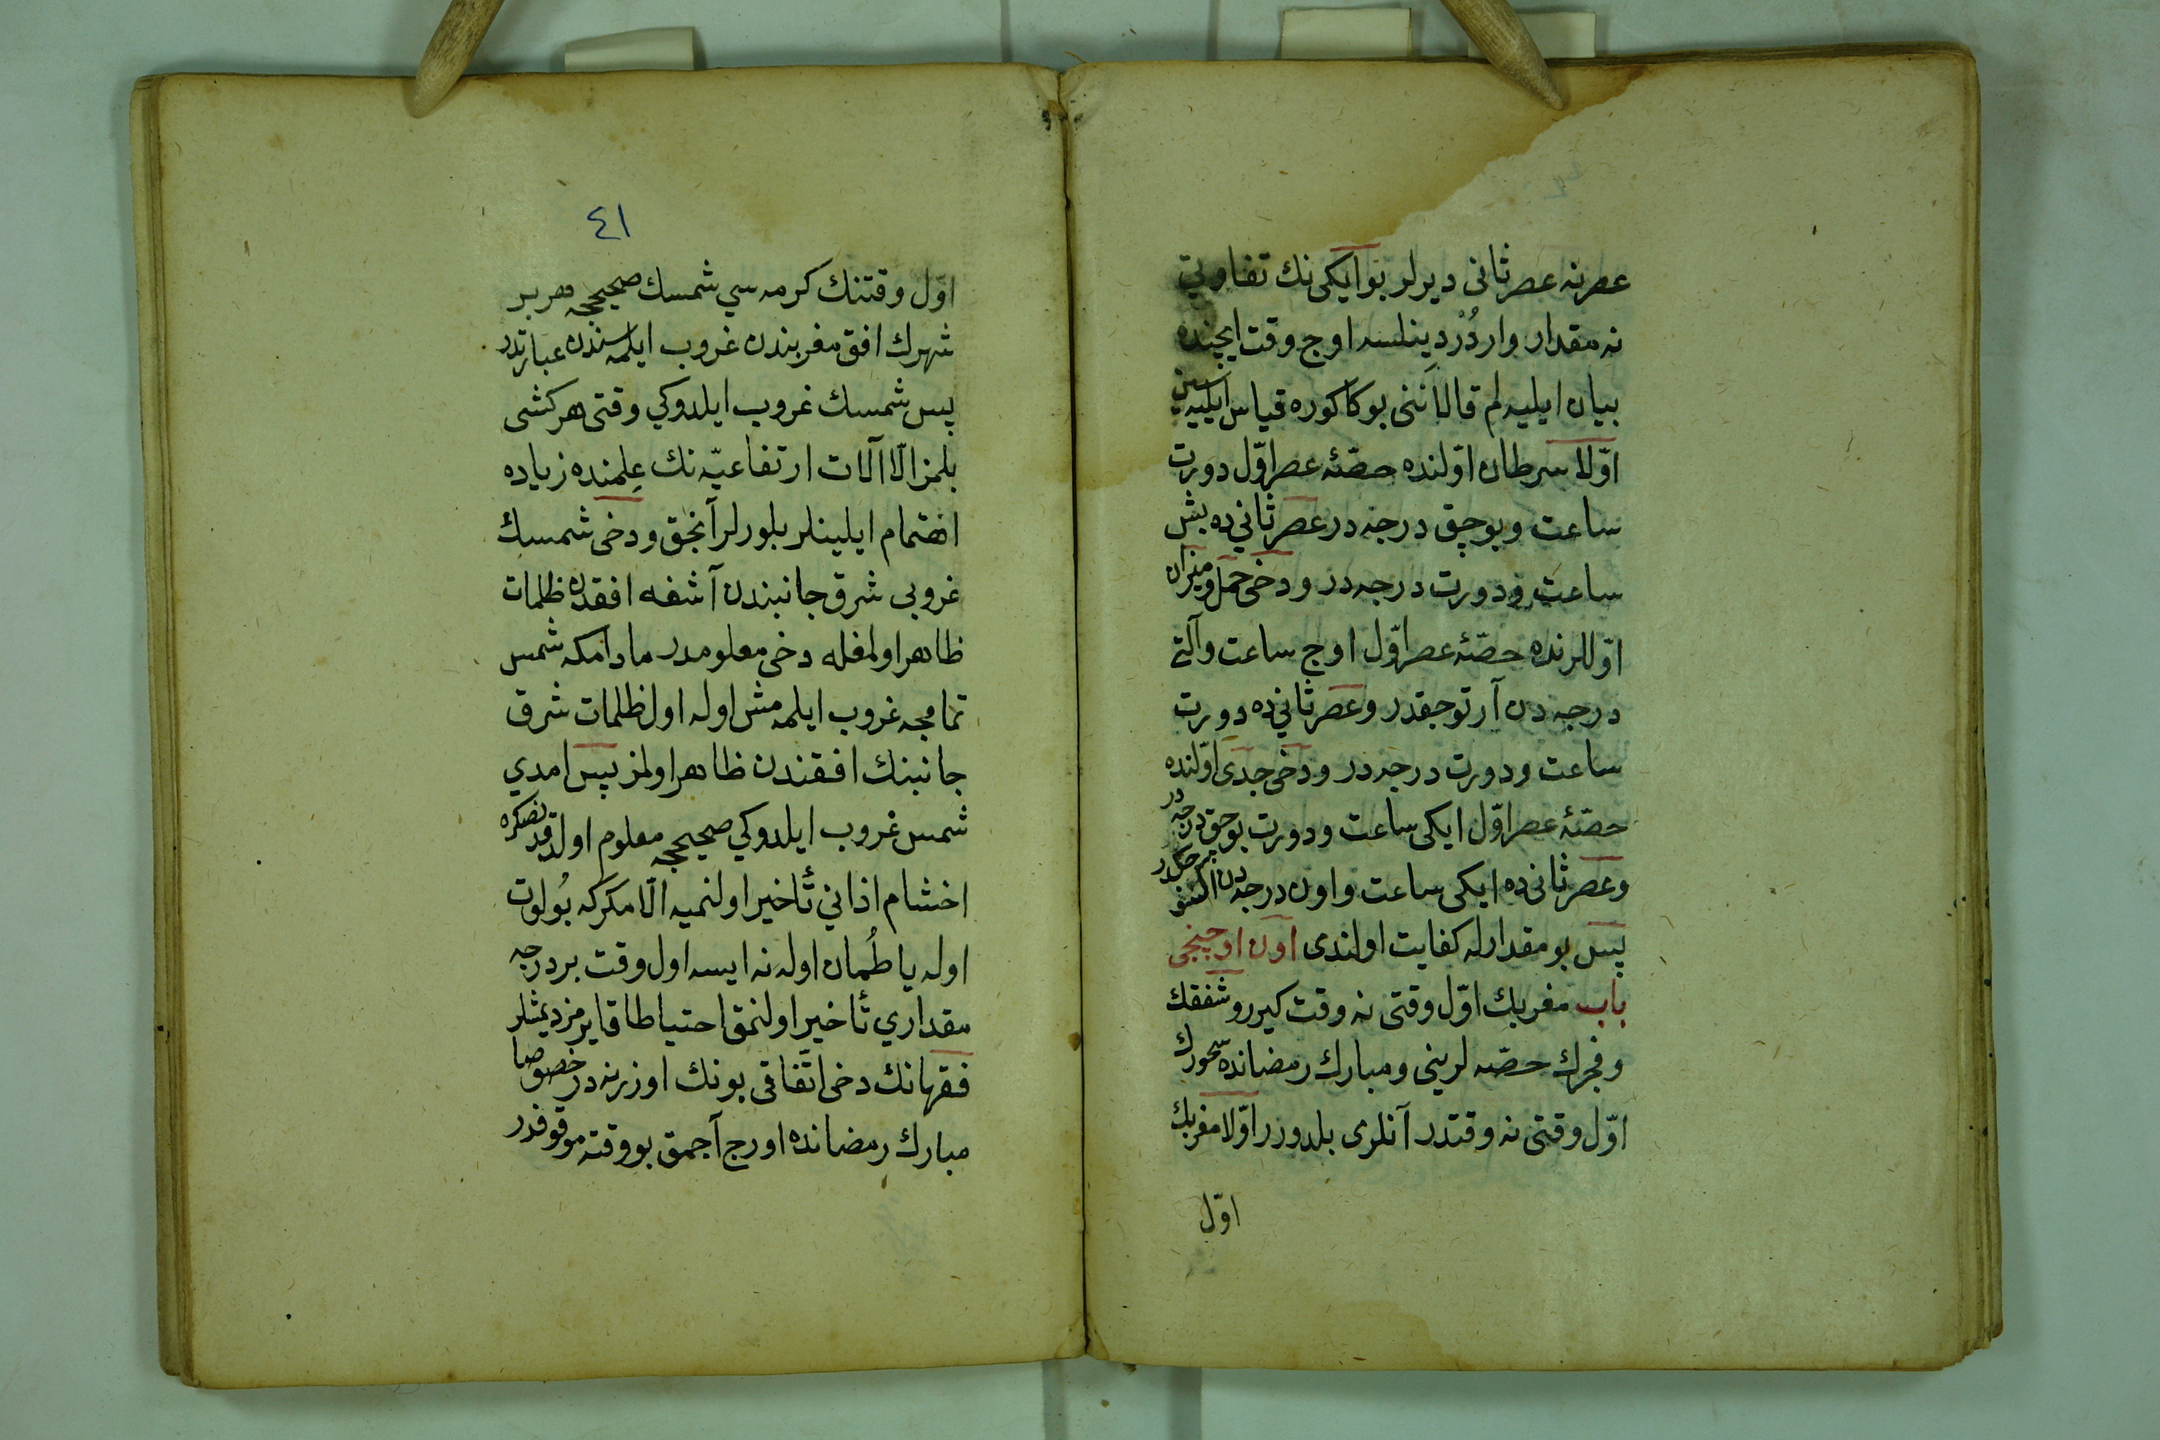 عصرنه عصر ثانی دیرلر بو ایکی نك تفاوتی
نه مقدار واردُرْ دینلسه اوج وقت ایچنده
بیان ایلیه لم قالاَننی بوکا کوره قیاس ایلیه سین
اوّلا سرطان اوّلنده حصّهٔ عصر اوّل دورت
ساعت و بوچق درجه در عصر ثانی ده بش
ساعت و دورت درجه در و دخی حمل و میزان
اوّللرنده حصّهٔ عصر اوّل اوج ساعت و آلتی
درجه دن آرتوجقدر و عصر ثانی ده دورت
ساعت و دورت درجه در و دخی جدی اوّلنده
حصّهٔ عصر اوّل ایکی ساعت و دورت بوچق درجه در
و عصر ثانی ده ایکی ساعت و اون درجه دن
پس بو مقدارله کفایت اولندی اون اوچنجی
باب مغربك اوّل وقتی نه وقت کیرر و شفقك
و فجرك حصّه لرینی و مبارك رمضانده سحورك
اوّل وقتی نه وقتدر آنلری بلدورر اوّلا مغربك
اوّل
٤١
اوّل وقتنك کرمه سی شمسك صحیحجه هر بر
شهرك افق مغربندن غروب ایلمه سندن عبارتدر
پس شمسك غروب ایلدوکی وقتی هر کشی
بلمز الّا آلات ارتفاعیّه نك عِلمنده زیاده
اهتمام ایلینلر بلورلر آنجق و دخی شمسك
غروبی شرق جانبندن آشغه افقدن ظلمات
ظاهر اولمغله دخی معلومدر مادامکه شمس
تمامجه غروب ایلمه مش اوله اول ظلمات شرق
جانبنك افقندن ظاهر اولمز پس امدی
شمس غروب ایلدوکی صحیحجه معلوم اولدقدنصکره
اخشام اذانی تأخیر اولنمیه الّا مکر که بُولوت
اوله یا طُمان اوله نه ایسه اول وقت بر درجه
مقداری تأخیر اولنمق احتیاطا قایرمز دیمشلر
فقهانك دخی اتّفاقی بونك اوزرنه در خصوصا
مبارك رمضانده اورج آجمق بو وقته موقوفدر